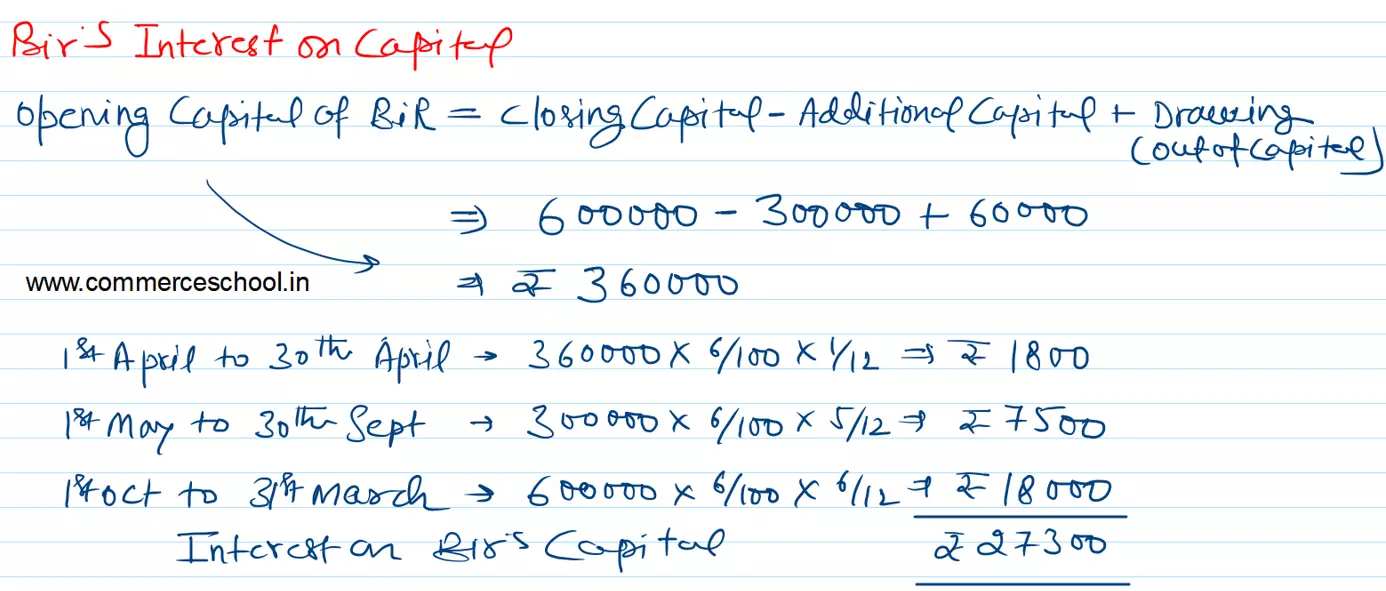 Bir's Interest on Capital
Opening Capital of BIR = Closing Capital - Additional Capital + Drawing
(out of Capital)
⇒ 600000 - 300000 + 60000
www.commerceschool.in ⇒ ₹ 360000
1st April to 30th April → 360000 × 6/100 × 1/12 ⇒ ₹ 1800
1st May to 30th Sept → 300000 × 6/100 × 5/12 ⇒ ₹ 7500
1st Oct to 31st March → 600000 × 6/100 × 6/12 ⇒ ₹ 18000
Interest on Bir's Capital ₹ 27300